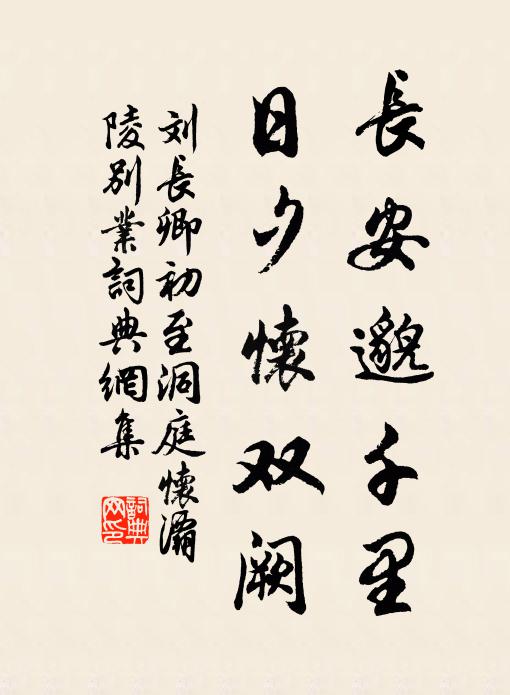 長安邈千里
日夕懷双阙
刘長卿初至洞庭懷灞
陵別業詞典網集
詞典
网印